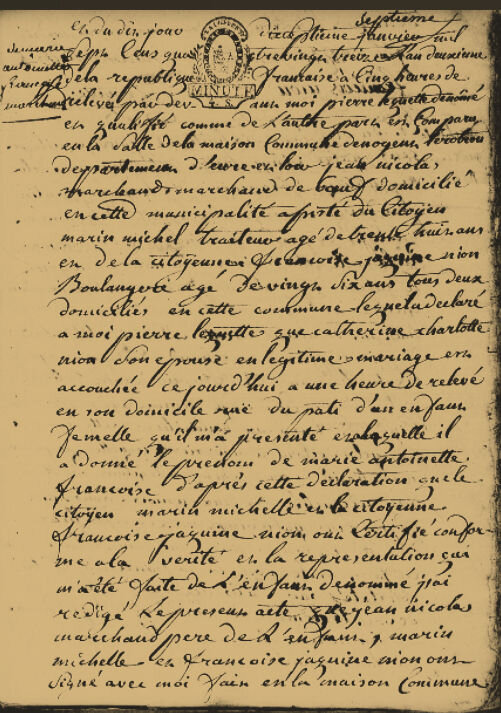 et du dix jour dixseptieme janvier mil
septieme
sept cens quatrevingt treize l'an deuxieme
de la republique francaise a cinq heures de
relevé par devant moi pierre denomé
MINUTE
marie
antoinette
francoise
marchand
en qualité comme de l'autre part est comparu
en la salle de la maison Commune de nogent
departement d'eure et loir jean nicolas
marchand marchand de bœuf domicilié
en cette municipalité assisté du Citoyen
marin michel traiteur agé de trente huit ans
et de la citoyenne francoise jaquine nion
Boulangere agé de vingt six ans tous deux
domiciliés en cette commune lequel a declaré
a moi pierre que catherine charlotte
nion son epouse en legitime mariage est
accouchée ce jourd'hui a une heure de relevé
en son domicile rue du pati d'un enfant
femelle qu'il m'a presenté et a laquelle il
a donné le prenom de marie antoinette
francoise d'après cette déclaration que le
citoyen marin michelle et la citoyenne
francoise jaquine nion ont certifié confor
me a la verité et la representation qui
m'a été faite de L'enfant denommé j'ai
redigé Le present acte que jean nicolas
marchand pere de L'enfant, marin
michelle et francoise jaquine nion ont
signé avec moi fait en la maison Commune